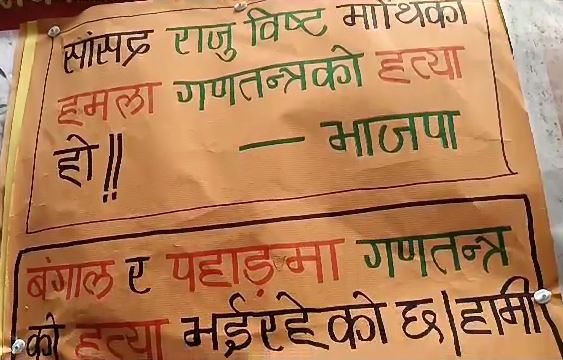 सांसद राजु विष्ट माथिको
हमला गणतन्त्रको हत्या
हो!!
— भाजपा
बंगाल र पहाड़मा गणतन्त्र
को हत्या भईरहेको छ|हामी